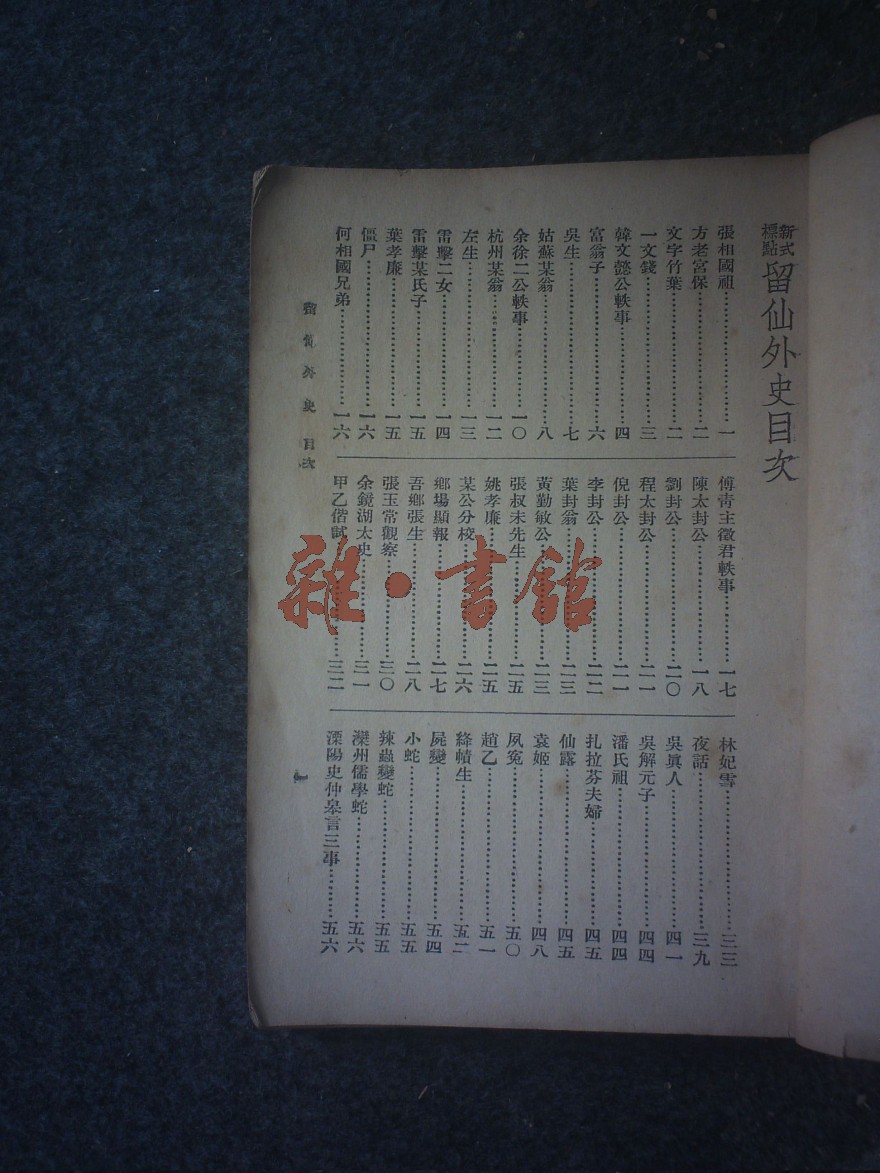 新式標點 留仙外史目次
張相國祖⋯⋯一
方老宮保⋯⋯二
文字竹葉⋯⋯二
一文錢⋯⋯三
韓文懿公軼事⋯⋯四
富翁子⋯⋯六
吳生⋯⋯七
姑蘇某翁⋯⋯八
余徐二公軼事⋯⋯一〇
杭州某翁⋯⋯一二
左生⋯⋯一三
雷擊二女⋯⋯一四
雷擊某氏子⋯⋯一五
葉孝廉⋯⋯一五
僵尸⋯⋯一六
何相國兄弟⋯⋯一六
傅青主徵君軼事⋯⋯一七
陳太封公⋯⋯一八
劉封公⋯⋯二〇
程太封公⋯⋯二一
倪封公⋯⋯二一
李封公⋯⋯二二
葉封翁⋯⋯二三
黃勤敏公⋯⋯二三
張叔未先生⋯⋯二五
姚孝廉⋯⋯二五
某公分校⋯⋯二六
鄉場顯報⋯⋯二七
吾鄉張生⋯⋯二八
張玉常觀察⋯⋯三〇
余鏡湖太史⋯⋯三一
甲乙偕試⋯⋯三二
林妃雪⋯⋯三三
夜話⋯⋯三九
吳眞人⋯⋯四一
吳解元子⋯⋯四四
潘氏祖⋯⋯四四
扎拉芬夫婦⋯⋯四五
仙露⋯⋯四五
袁姬⋯⋯四八
夙冤⋯⋯五〇
趙乙⋯⋯五一
絳幘生⋯⋯五二
屍變⋯⋯五四
小蛇⋯⋯五五
辣蟲變蛇⋯⋯五五
灤州儒學蛇⋯⋯五六
溧陽史仲皋言三事⋯⋯五六
留仙外史 目次
一
雜·書館